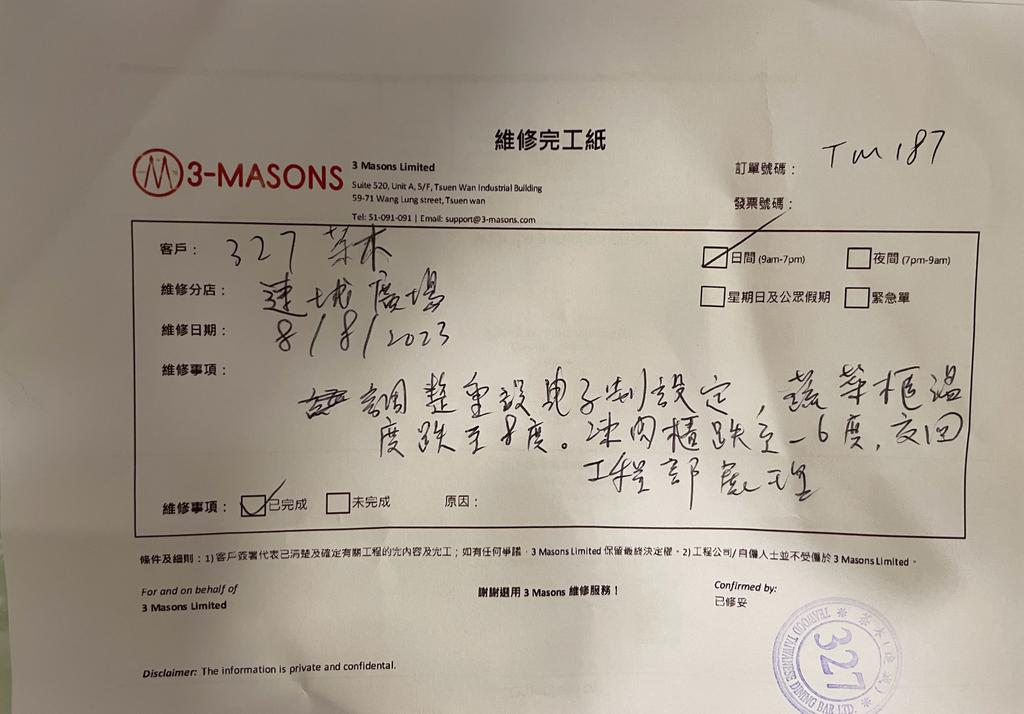 維修完工紙
3-MASONS
3 Masons Limited
Suite 520, Unit A, 5/F, Tsuen Wan Industrial Building
59-71 Wang Lung street, Tsuen wan
Tel: 51-091-091 | Email: support@3-masons.com
訂單號碼： TM187
發票號碼：
客戶： 327 茶木
維修分店： 連城廣場
維修日期： 8/8/2023
日間 (9am-7pm) 夜間 (7pm-9am)
星期日及公眾假期 緊急單
維修事項：
調整重設电子制設定，蔬菜柜溫
度跌至8度。冻肉櫃跌至-6度，交回
工程部處理
維修事項： 已完成 未完成 原因：
條件及細則：1) 客戶簽署代表已清楚及確定有關工程的完內容及完工；如有任何爭議，3 Masons Limited 保留最終決定權。2) 工程公司/ 自僱人士並不受僱於 3 Masons Limited。
For and on behalf of
3 Masons Limited
謝謝選用 3 Masons 維修服務！
Confirmed by:
已修妥
Disclaimer: The information is private and confidential.
TEAWOOD TAIWANESE DINING BAR LTD.
327